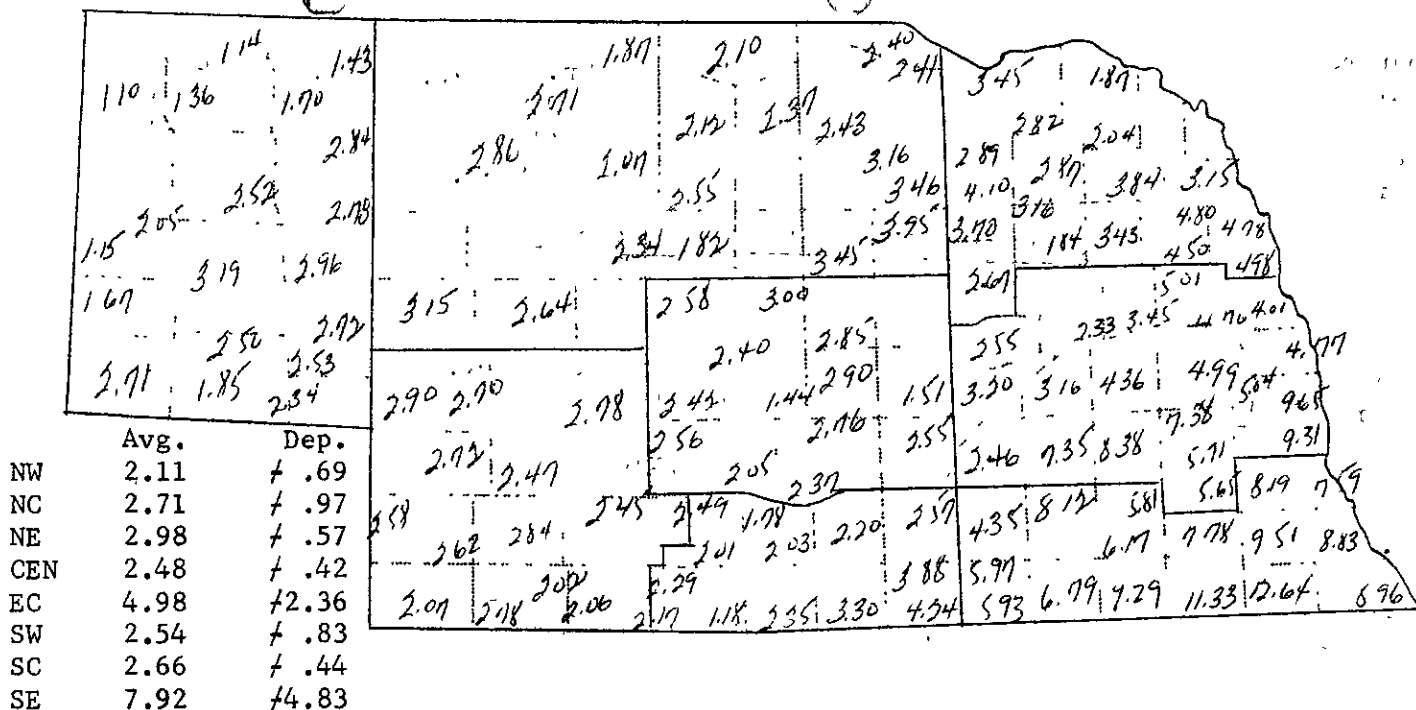 1.14 1.43
1.10 1.36 1.70
2.84
2.05 2.52 2.78
1.15
1.67 3.19 2.96
2.50 2.72
2.53
2.71 1.85 2.34
1.87 2.10 2.40
2.41
2.71
2.12 2.43
2.86 3.16
2.55 3.46
3.95
2.34 1.82 3.45
3.15 2.64
3.45 1.87
2.82 2.04
2.89 2.87 3.84 3.15
4.10 3.16
3.70 1.84 3.43 4.80 4.78
4.50 4.98
2.67 5.01
2.58 3.00
2.40 2.85
2.90
2.42 1.44 1.51
2.56 2.76 2.55
2.05 2.37
2.55 2.33 3.45 4.76 4.01
4.77
3.20 3.16 4.36 4.99 5.84
7.38 9.65
2.46 7.35 8.38 5.71 9.31
2.90 2.70 2.78
2.72 2.47
2.58 2.45
2.62 2.84
2.02
2.07 2.78 2.06
2.49 1.78 2.20 2.57
2.01 2.03
2.29 3.88
2.17 1.18 2.35 3.30 4.24
4.35 8.12 5.81 5.65 8.19 7.59
5.97 6.17 7.78 9.51 8.83
5.93 6.79 7.29 11.33 12.64 8.96
Avg. Dep.
NW 2.11 + .69
NC 2.71 + .97
NE 2.98 + .57
CEN 2.48 + .42
EC 4.98 +2.36
SW 2.54 + .83
SC 2.66 + .44
SE 7.92 +4.83